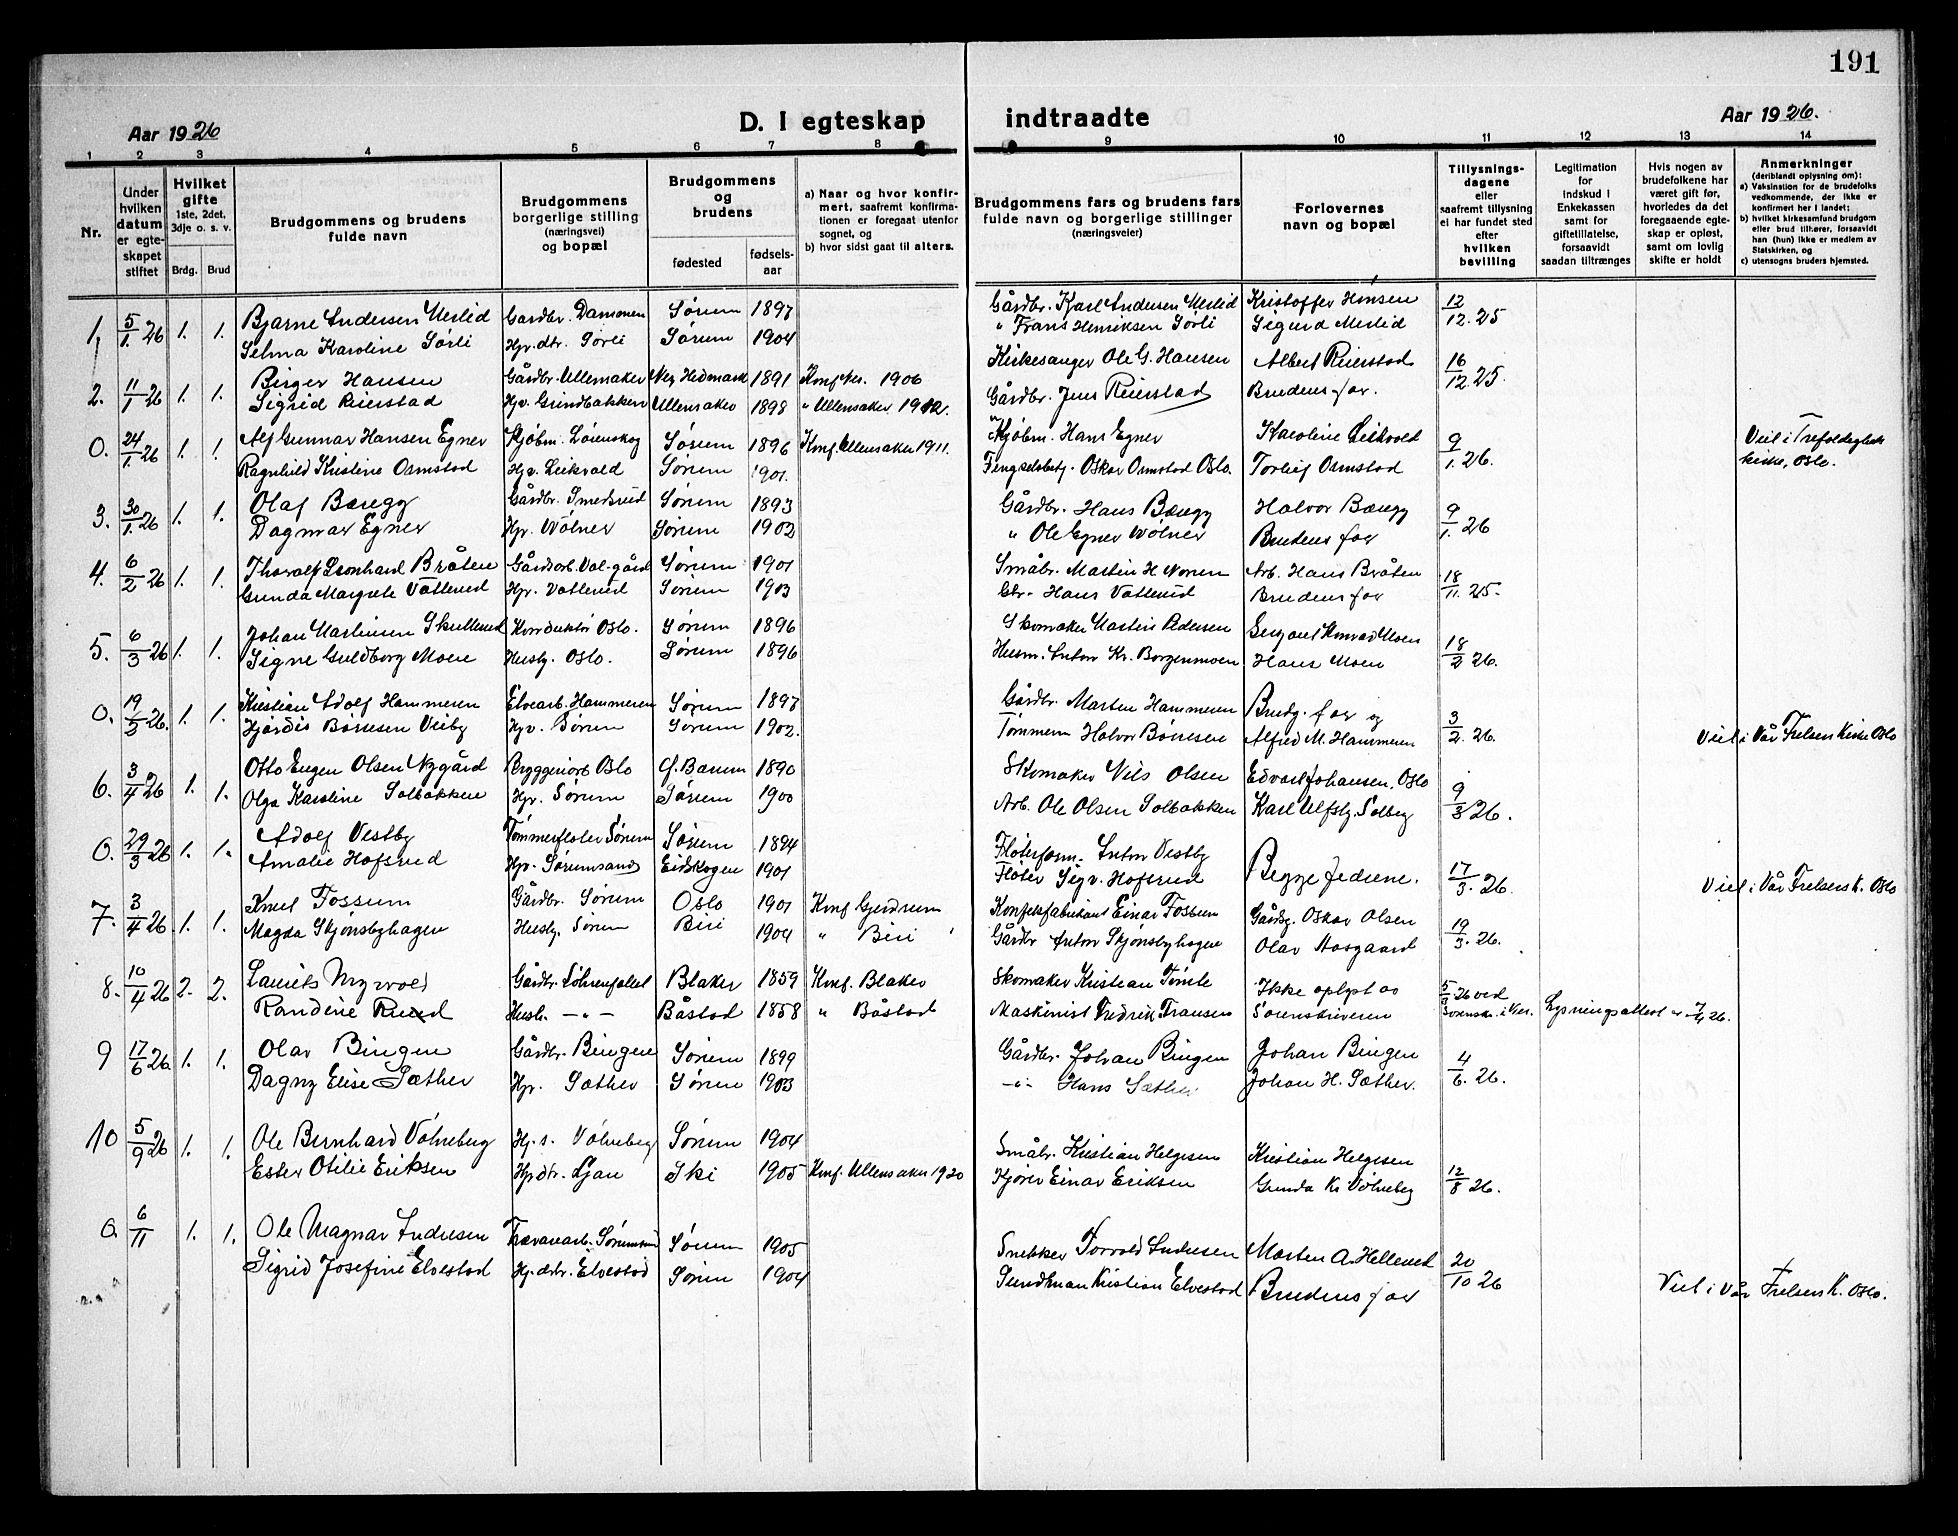 191
Aar 1926
D. I egteskap indtraadte
Aar 1926.
1 2 3 4 5 6 7 8 9 10 11 12 13 14
Nr.
Under hvilken datum er egteskapet stiftet
Hvilket gifte
1ste, 2det, 3dje o. s. v.
Brdg. Brud
Brudgommens og brudens fulde navn
Brudgommens og brudens borgerlige stilling (næringsvei) og bopæl
Brudgommens og brudens
fødested
fødselsaar
a) Naar og hvor konfirmert, saafremt konfirmationen er foregaat utenfor sognet, og
b) hvor sidst gaat til alters.
Brudgommens fars og brudens fars fulde navn og borgerlige stillinger (næringsveier)
Forlovernes navn og bopæl
Tillysningsdagene eller saafremt tillysning ei har fundet sted efter hvilken bevilling
Legitimation for indskud i Enkekassen samt for giftetillatelse, forsaavidt saadan tiltrænges
Hvis nogen av brudefolkene har været gift før, hvorledes da det foregaaende egteskap er opløst, samt om lovlig skifte er holdt
Anmerkninger
(deriblandt oplysning om):
a) Vaksination for de brudefolks vedkommende, der ikke er konfirmert her i landet;
b) hvilket kirkesamfund brudgom eller brud tilhører, forsaavidt han (hun) ikke er medlem av Statskirken, og
c) utensogns bruders hjemsted.
1, 5/1 26 1. 1. Bjarne Andersen Merlid Gardbr. Sørum 1897 Gårdbr. Karl Andersen Merlid Kristoffer Hansen 12/12.25
Selma Karoline Sørli Hpv. dtr. Sørli Sørum 1904 " Frans Henriksen Sørli Sigurd Merlid
2. 11/1 26 1. 1. Birger Hansen Gårdbr. Ullensaker Nes Hedmark 1891 Konf. Nes. 1906 Kirkesanger Ole G. Hansen Albert Reierstad 16/12.25
Sigrid Reierstad Hpv. Grindbakken Ullensaker 1898 " Ullensaker 1912. Gårdbr. Jens Reierstad Brudens far.
0. 24/1.26 1. 1. Alf Gunnar Hansen Egner Kjøbm. Lørenskog Sørum 1896 Konf. Ullensaker 1911. Kjøbm. Hans Egner Karoline Leikvold 9/1.26. Viet i Trefoldighets
Ragnhild Kristine Ormstad Hpv. Leikvold Sørum 1901. Fengselsbetj. Oskar Ormstad Oslo. Torleif Ormstad kirke, Oslo.
3. 30/1.26 1. 1. Olaf Bøegg Gårdbr. Smedsrud Sørum 1893 Gårdbr. Hans Bøegg Halvor Bøegg 9/1.26
Dagmar Egner Hpv. Wølner Sørum 1902 " Ole Egner Wølner Brudens far
4. 6/2 26 1. 1. Thoralf Leonhard Bråten Gårdsarb. Val-gård Sørum 1901 Småbr. Martin H. Arb. Hans Bråten 18/11.25.
Gunda Margrete Vatterud Hpv. Vatterud Sørum 1903 Gbr. Hans Vatterud Brudens far
5. 6/3 26 1. 1. Johan Martinsen Skullerud Konduktør Oslo. Sørum 1896 Skomaker Martin Pedersen Sergeant Konrad Moen 18/2 26.
Signe Guldborg Moen Husbg. Oslo. Sørum 1896 Husm. Anton Kr. Borgenmoen Hans Moen
0. 19/3 26. 1. 1. Kristian Adolf Hammeren Elvearb. Hammeren Sørum 1897 Gårdbr. Marten Hammeren Brudg. far og 3/2.26.
Hjørdis Børresen Veiby Hpv. Sørum Sørum 1902. Tømmerm. Halvor Børresen Alfred M. Hammeren Viet i Vår Frelsers Kirke Oslo
6. 3/4 26 1. 1. Otto Eugen Olsen Nygård Bryggeriarb. Oslo Ø. Bærum 1890 Skomaker Nils Olsen Edvart Johansen, Oslo 9/3 26.
Olga Karoline Solbakken Hpv. Sørum Sørum 1900 Arb. Ole Olsen Solbakken Karl Ulfsby. Solberg
0. 29/3 26 1. 1. Adolf Vestby Tømmerfløter Sørum Sørum 1894 Fløterform. Anton Vestby Begge fedrene. 17/3.26.
Amalie Hofsrud Hpv. Sørumsand Eidskogen 1901 Fløter Sigv. Hofsrud Viet i Vår Frelsers K. Oslo
7. 3/4 26. 1. 1. Knut Fossum Gårdbr. Sørum Oslo 1901 Konf. Gjerdrum Konfekfabrikant Einar Fossum Gårdsg. Oskar Olsen 19/3.26.
Magda Skjønsbyhagen Husby. Sørum Biri 1904 " Biri Gårdbr. Anton Skjønsbyhagen Olav Aasgaard
8. 10/4 26 2. 2. Laurits Myrvold Gårdbr. Blaker 1859 Konf. Blaker Skomaker Kristian Ikke oplyst av 5/3 26 ved
Randine Ruud Husb. —„— Båstad 1858 " Båstad Maskinist Fredrik Fransen Sorenskriveren Sorensk. i Nes. Lysningsattest av 7/4 26.
9 17/6 26. 1. 1. Olav Bingen Gårdbr. Bingen Sørum 1899 Gårdbr. Johan Bingen Johan Bingen 4/6.26.
Dagny Elise Sæther Hpv. Sæther Sørum 1903 —„— Hans Sæther Johan H. Sæther.
10 5/9 26 1. 1. Ole Bernhard Vølneberg Hj. s. Vølneberg Sørum 1904 Småbr. Kristian Helgesen Kristian Helgesen 12/8 26.
Ester Otilie Eriksen Hpdtr. Ljan Ski 1905 Konf. Ullensaker 1920 Kjører Einar Eriksen Gunda Kr. Vølneberg
0. 6/11 1. 1. Ole Magnar Andresen Trævarearb. Sørumsand Sørum 1905 Snekker Torvald Andresen Marten A. Hellerud 20/10 26
Sigrid Josefine Elvestad Hj. dtr. Elvestad Sørum 1904 Sundman Kristian Elvestad Brudens far Viet i Vår Frelsers K. Oslo.